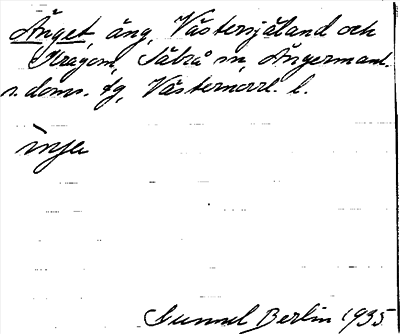 Änget, äng, Västersjäland och
Stragom, Säbrå sn, Ångermanl.
s. doms. fg, Västernorrl. l.
Gunnel Berlin 1935